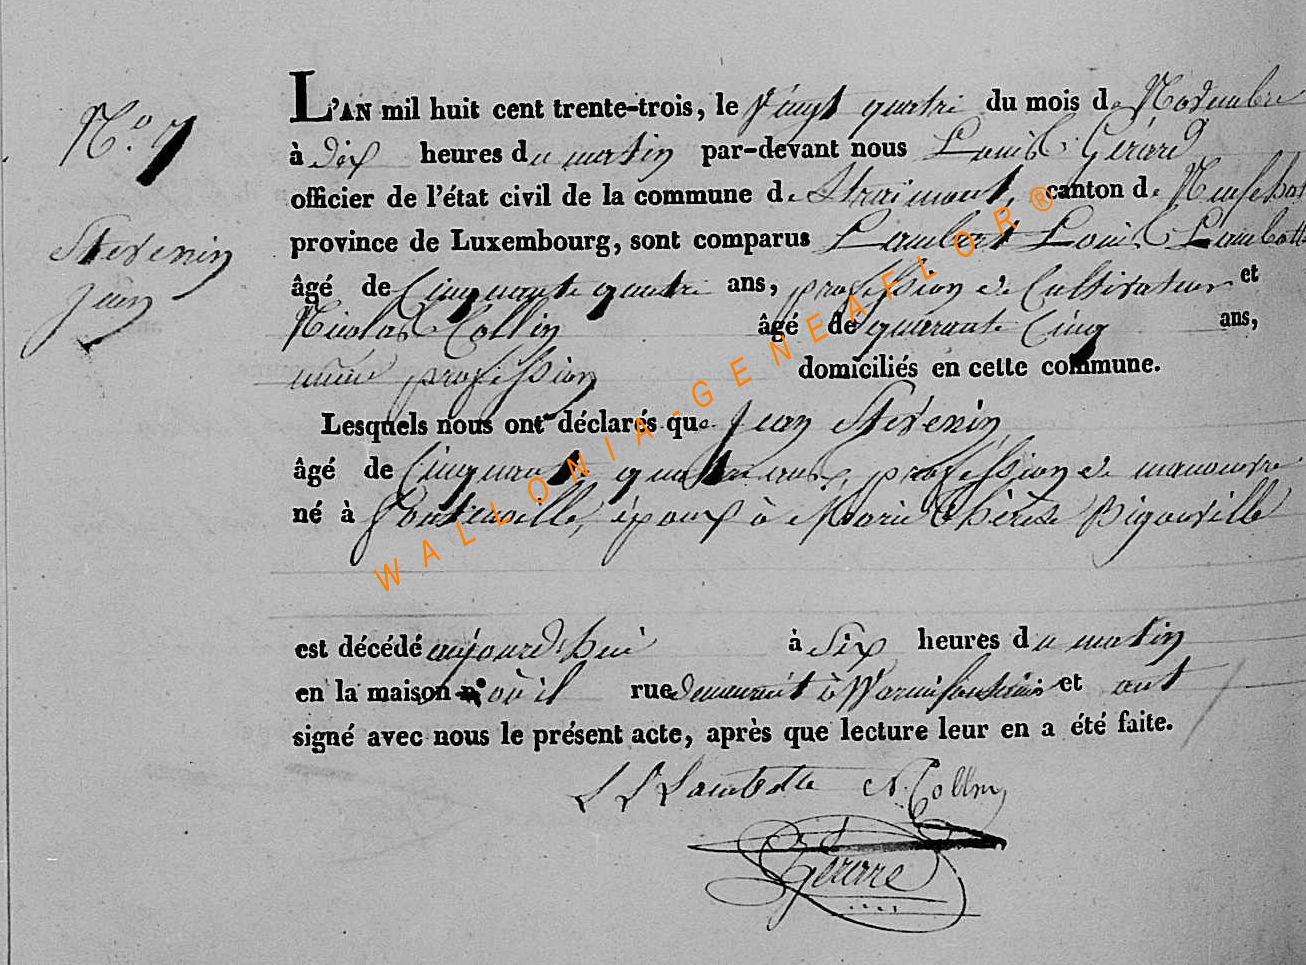 N.º 7
Stevenin
Jean
L'AN mil huit cent trente-trois, le vingt quatre du mois de Novembre
à dix heures du matin par-devant nous Louis Gérard
officier de l'état civil de la commune de Straimont, canton de Neufchat
province de Luxembourg, sont comparus Lambert Louis Lambotte
âgé de Cinquante quatre ans, profession de Cultivateur et
Nicolas Collin âgé de quarante Cinq ans,
même profession domiciliés en cette commune.
Lesquels nous ont déclarés que Jean Stevenin
âgé de Cinquante quatre ans, profession de manouvre
né à époux à Marie Thérèse Pigouville
est décédé aujourd'hui à Six heures du matin
en la maison nº où il rue demeurait à Warmifontaine et ont
signé avec nous le présent acte, après que lecture leur en a été faite.
L L Lambotte N. Collin
Gerard
WALLONIA-GENEAFLOR®